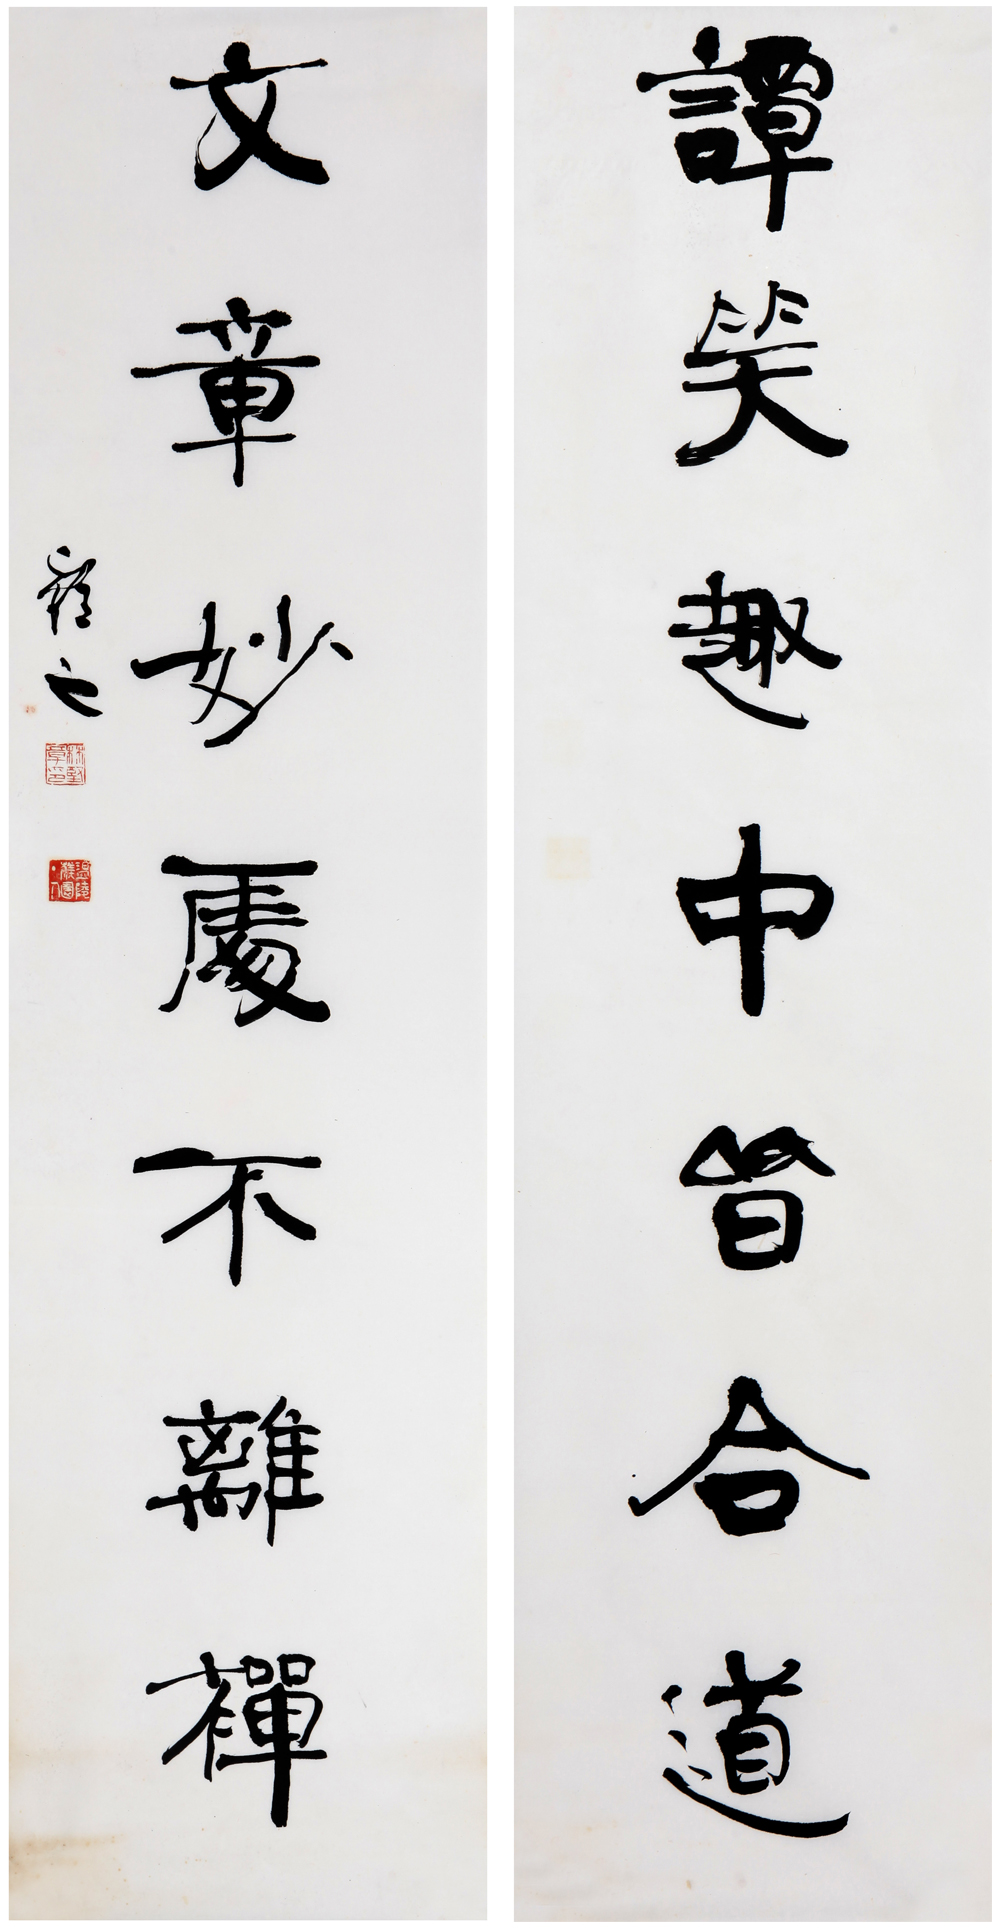 譚笑趣中皆合道
文章妙處不離禪